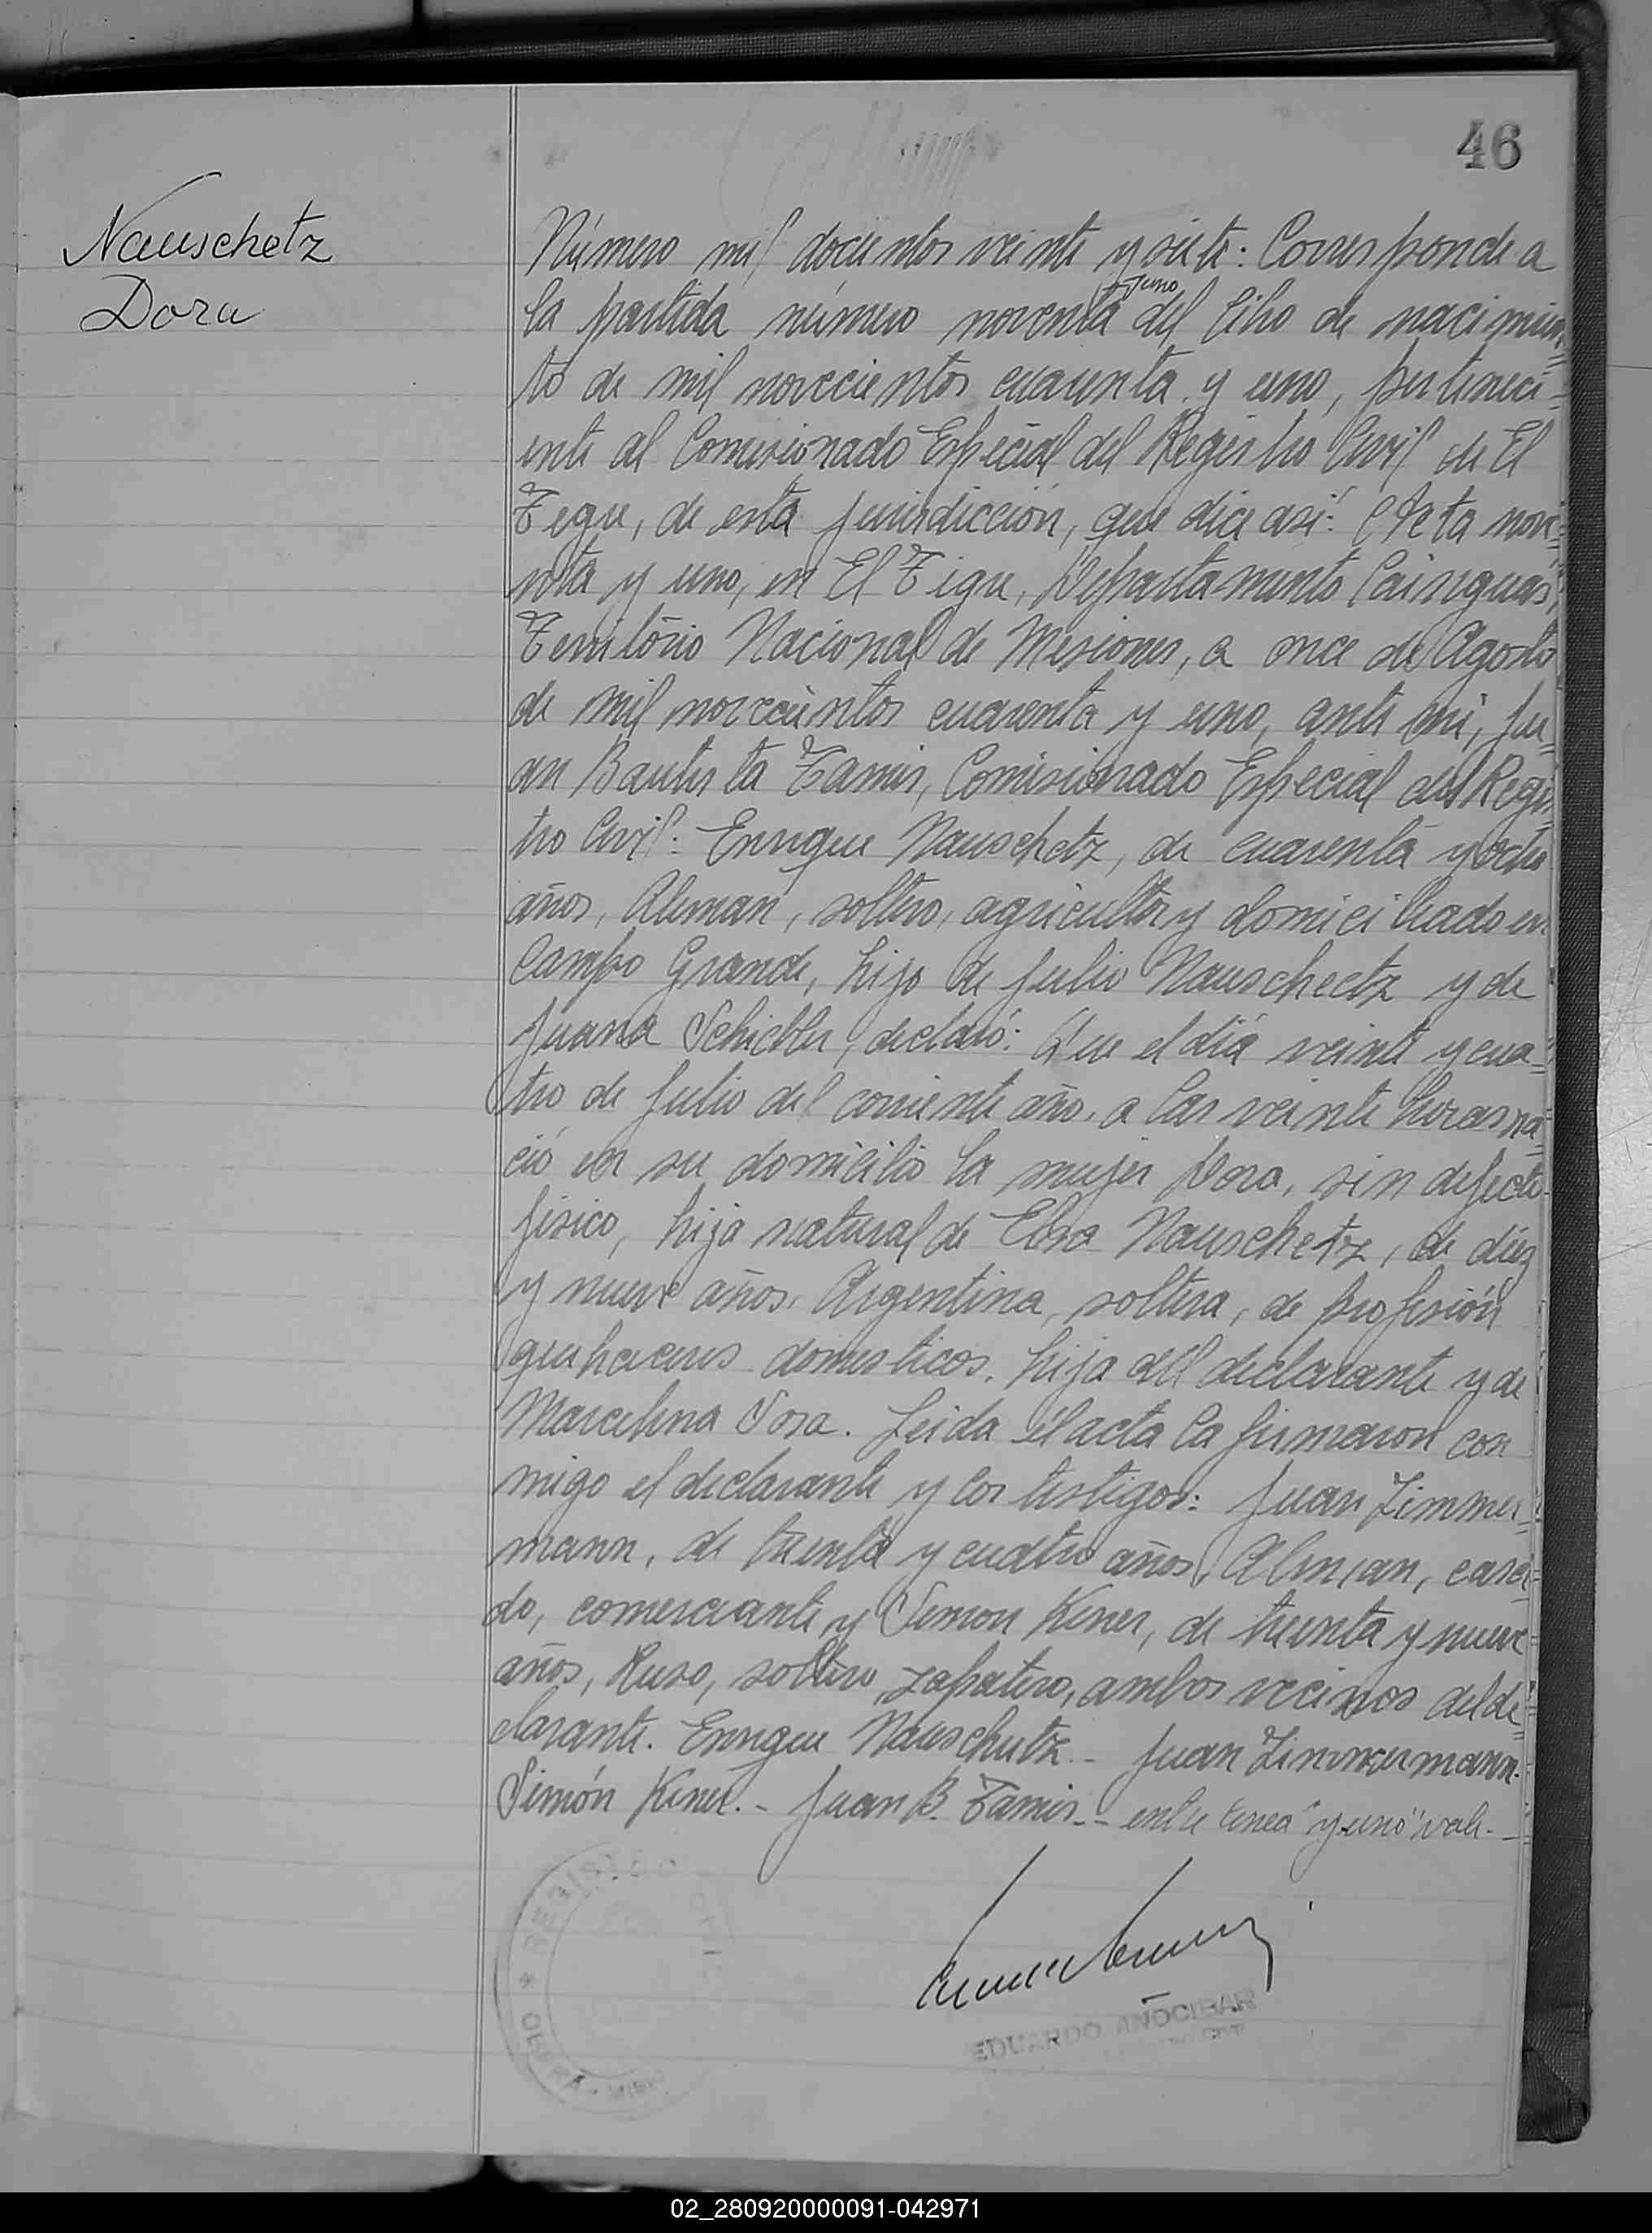 46
Nauschetz
Dora
Número mil docientos veinte y siete: Corresponde a
la partida número noventa y uno del libro de nacimien=
to de mil novecientos cuarenta y uno, perteneci=
ente al Comisionado Especial del Registro Civil de El
Tigre, de esta jurisdicción, que dice así: Acta nove=
nta y uno, en El Tigre, Departamento Cainguas,
Território Nacional de Misiones, a once de Agosto
de mil novecientos cuarenta y uno, ante mi, Ju=
an Bautista Tamis, Comisionado Especial del Regis=
tro Civil: Enrique Nauschetz, de cuarenta y ocho
años, Aleman, soltero, agricultor y domiciliado en
Campo Grande, hijo de Julio Nauschectz y de
Juana Schiebler, declaró: Que el día veinte y cua=
tro de Julio del corriente año, a las veinte horas na=
ció en su domicilio la mujer Dora, sin defecto
fisico, hija natural de Elsa Nauschetz, de diez
y nueve años, Argentina, soltera, de profesión
quehaceres domesticos, hija del declarante y de
Marcelina Sosa. Leida el acta la firmaron con
migo el declarante y los testigos: Juan Zimmer=
mann, de treinta y cuatro años, Aleman, casa=
do, comerciante y Simon Kiner, de treinta y nueve
años, Ruso, soltero, zapatero, ambos vecinos del de=
clarante. Enrique Nauschutz.- Juan Zimmermann.
Simón Kiner.- Juan B. Tamis.- entre linea "y uno" vale.-
REGISTRO
OBERÁ - MISIO
EDUARDO AÑOCIBAR
02_280920000091-042971